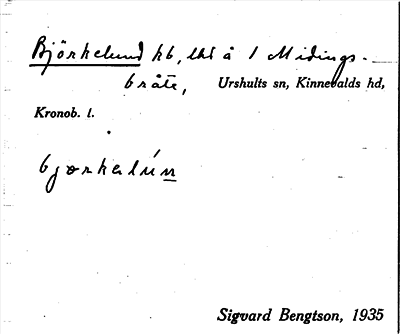 Björkelund hb, lht å 1 Midings-
bråte, Urshults sn, Kinnevalds hd,
Kronob. l.
bjørkəlún
Sigvard Bengtson, 1935